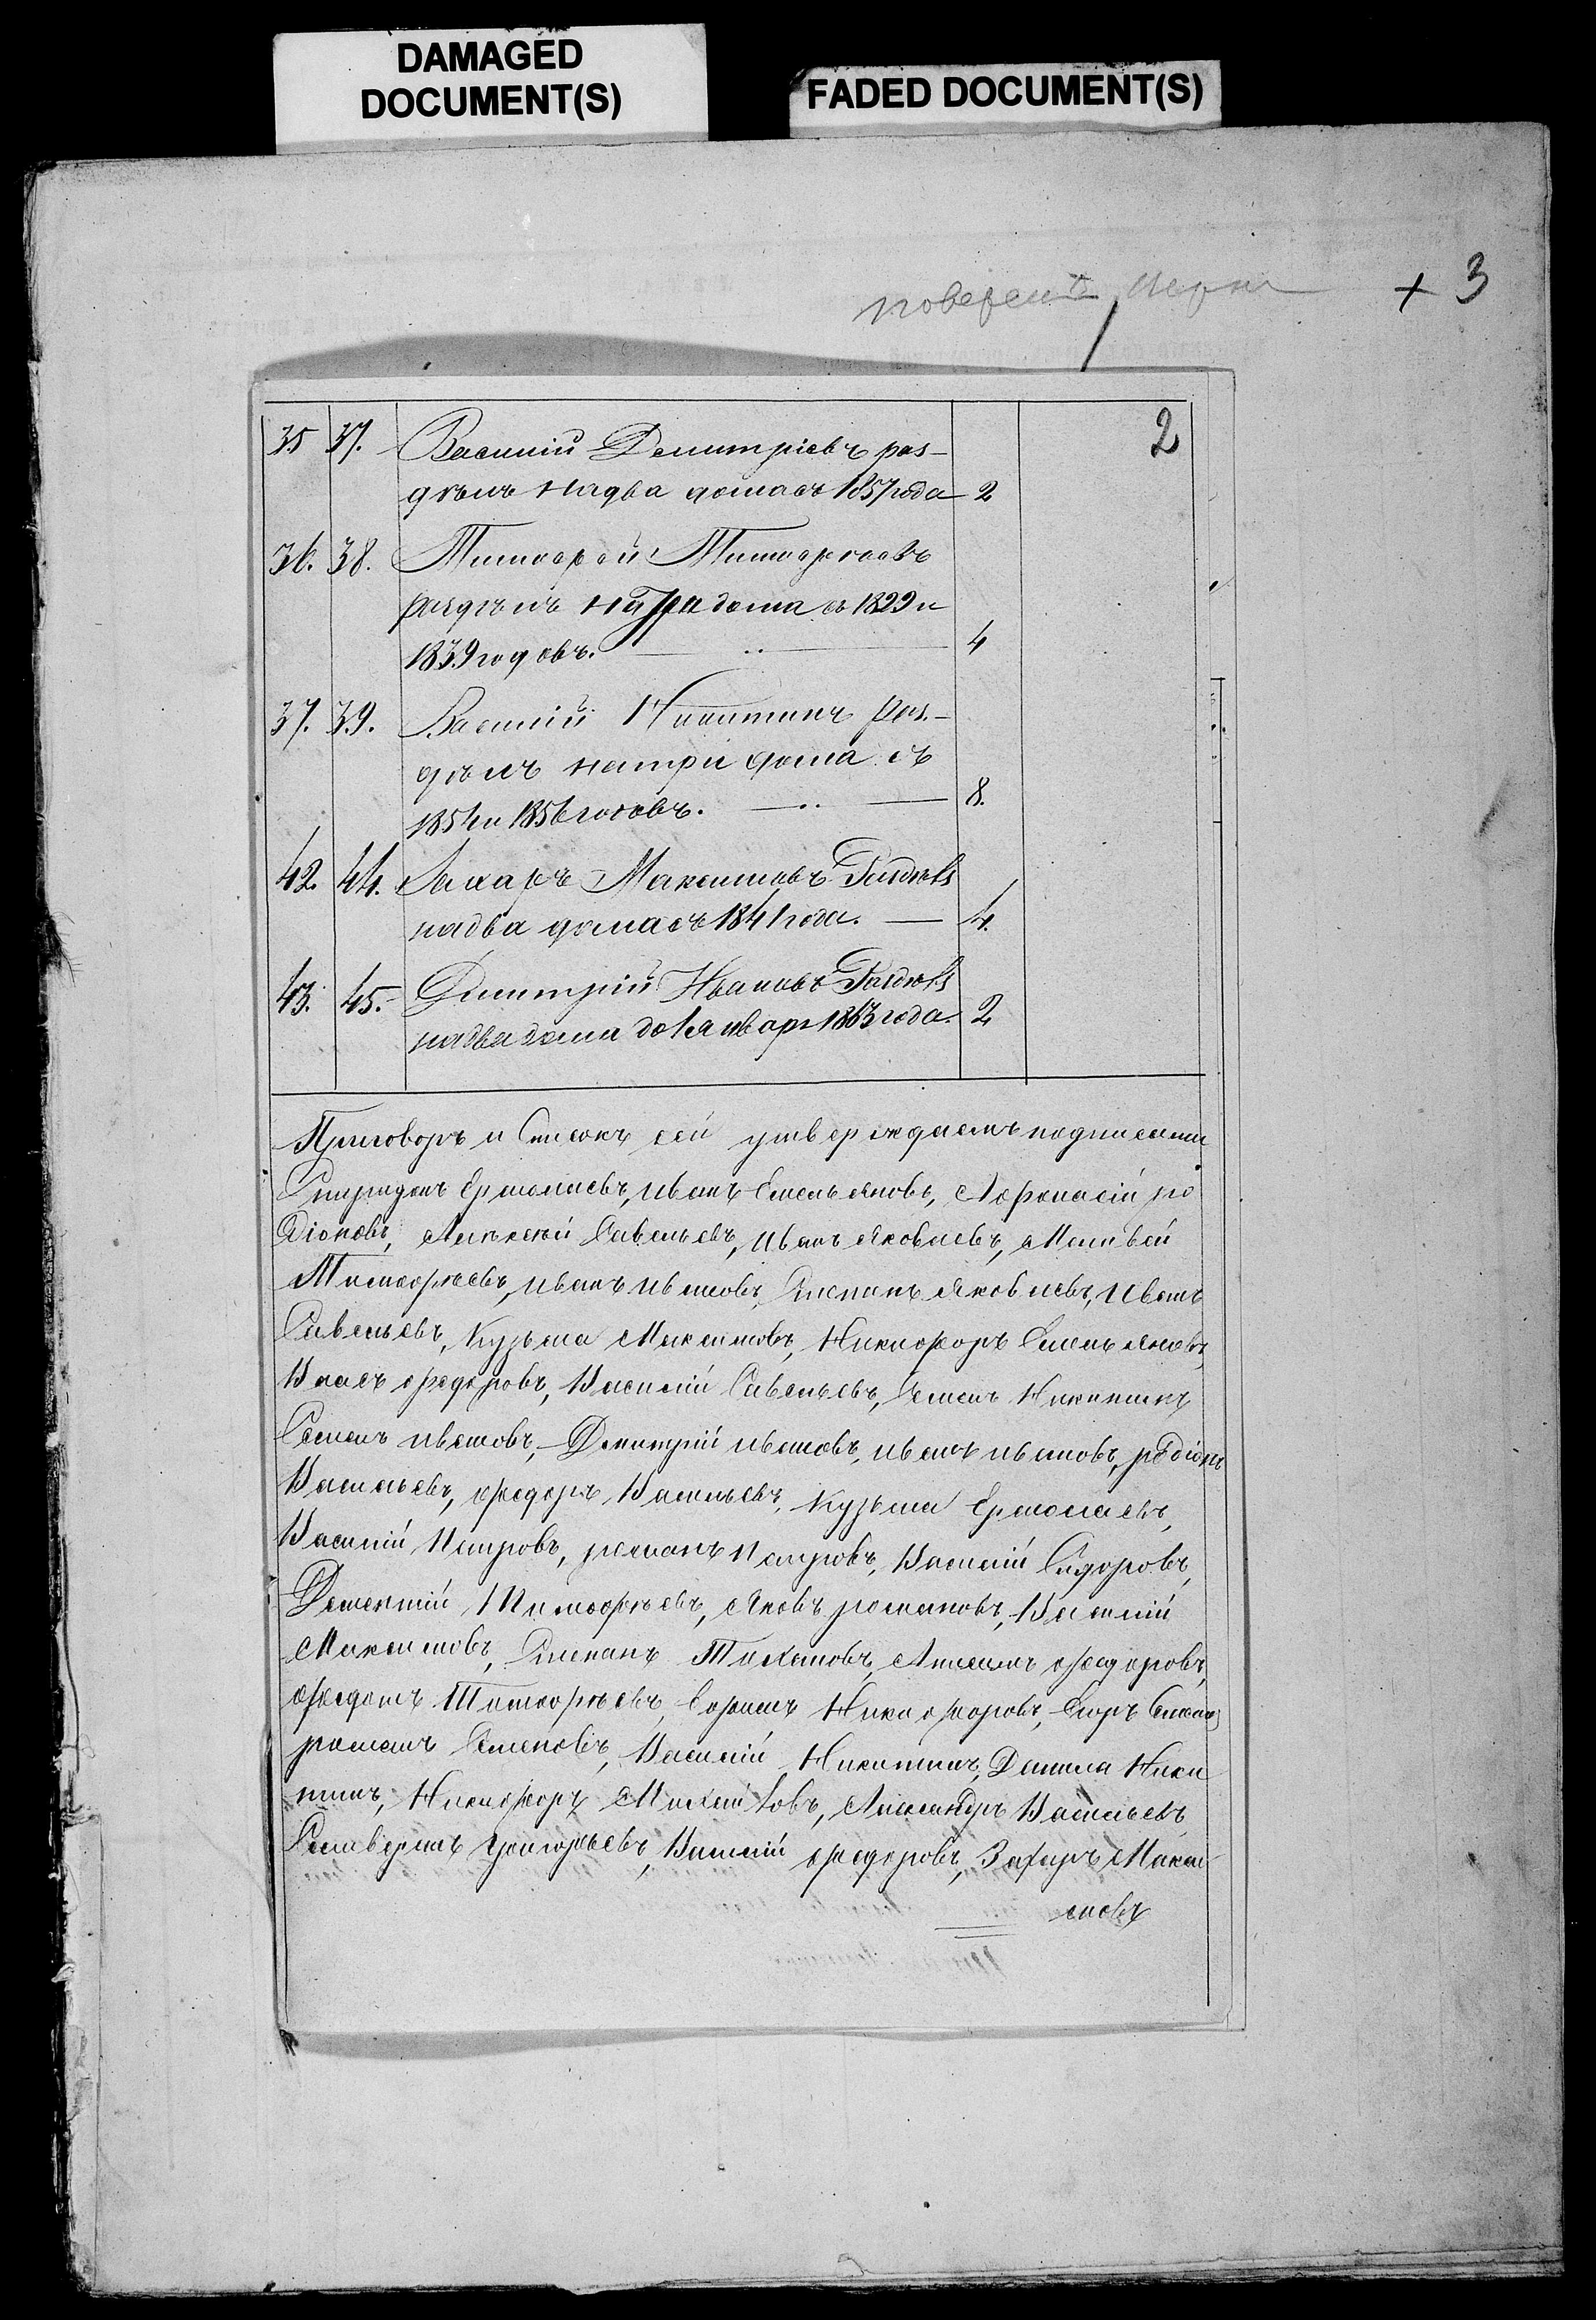 DAMAGED
DOCUMENT(S)
FADED DOCUMENT(S)
+ 3
2
35 37. Василий Демитріевъ раз-
дѣлъ на два дома съ 1857 года 2
36. 38. Тимоѳей Тимоѳеевъ
раздѣлъ на три дома съ 1829 и
1839 годовъ. 4
37. 39. Василий Никитинъ раз-
дѣлъ на три дома съ
1854 и 1856 годовъ. 8.
42. 44. Захаръ Максимовъ Раздѣлъ
на два дома съ 1841 года. 4.
43. 45. Дмитрій Ивановъ Раздѣлъ
на два дома до 1 января 1863 года. 2
Приговоръ и Списокъ сей утверждаемъ подписями
Спиридонъ Ермолаевъ, Иванъ Емельяновъ, Афонасій Ро
діоновъ, Алексей Савельевъ, Иванъ Яковлевъ, Матвей
Тимофѣевъ, Иванъ Ивановъ, Степанъ Яковлевъ, Иванъ
Савельевъ, Кузьма Максимовъ, Никифоръ Емельяновъ,
Власъ Федоровъ, Василий Савельевъ, Семенъ Никитинъ
Семенъ Ивановъ, Демитрий Ивановъ, Иванъ Ивановъ, Родіонъ
Васильевъ, Федоръ Васильевъ, Кузьма Ермолаевъ,
Василий Петровъ, Романъ Петровъ, Василий Сидоровъ,
Дементий Тимофѣевъ, Яковъ Романовъ, Василий
Максимовъ, Степанъ Тихоновъ, Анисимъ Федоровъ,
Федотъ Тимофѣевъ, Ефимъ Никифоровъ, Егоръ Семеновъ
Романъ Семеновъ, Василий Никитинъ, Данила Ники
тинъ, Никифоръ Михайловъ, Александръ Васильевъ,
Селиверстъ Григорьевъ, Василий Федоровъ, Захаръ Макси
мовъ